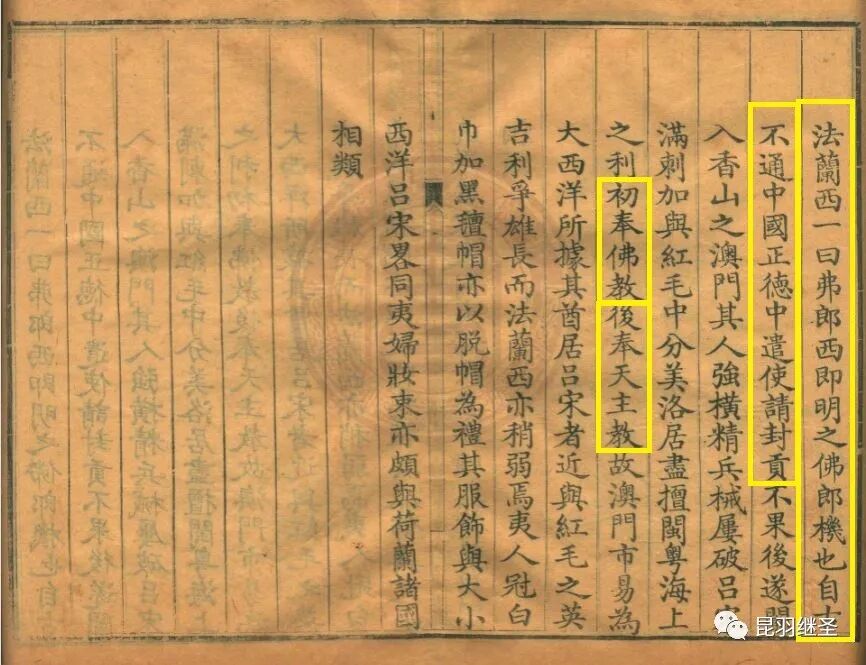 法蘭西一曰弗郎西即明之佛郎機也自古
不通中國正德中遣使請封貢不果後遂
入香山之澳門其人強橫精兵械屢破呂宋
滿剌加與紅毛中分美洛居盡擅閩粵海上
之利初奉佛教後奉天主教故澳門市易為
大西洋所據其酋居呂宋者近與紅毛之英
吉利爭雄長而法蘭西亦稍弱焉夷人冠白
巾加黑氊帽亦以脫帽為禮其服飾與大小
西洋呂宋畧同夷婦妝束亦頗與荷蘭諸國
相類
昆羽继圣